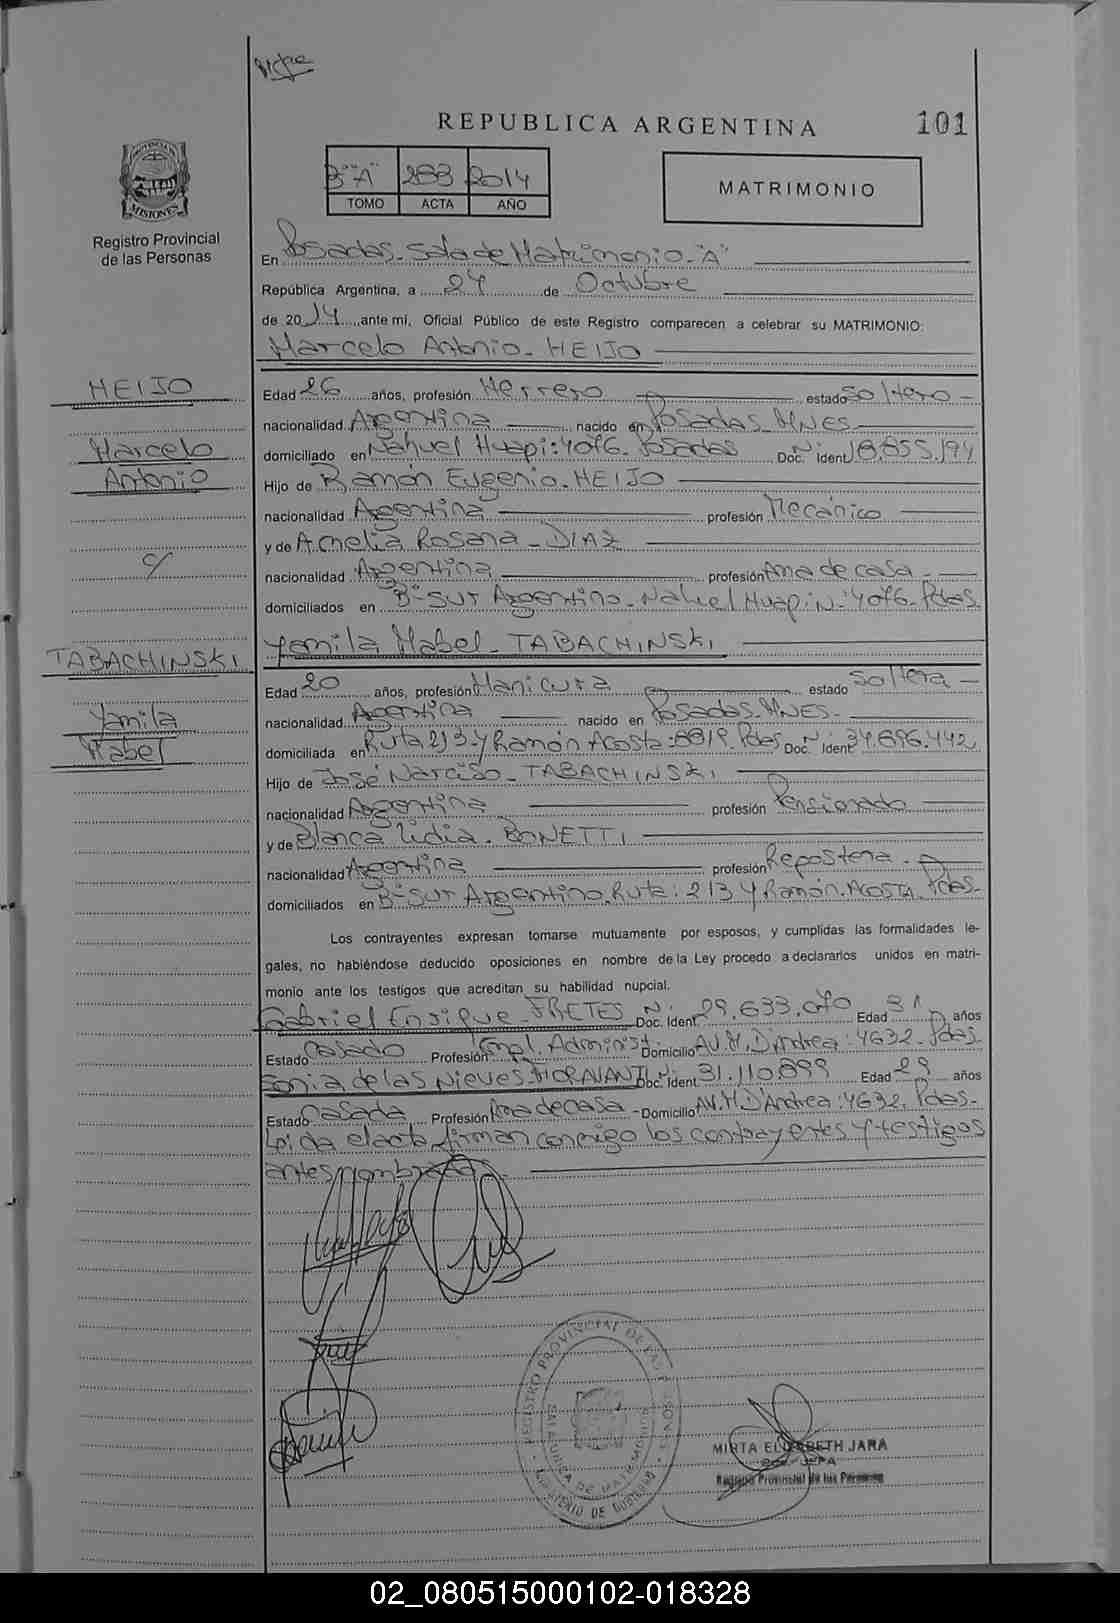 REPUBLICA ARGENTINA
101
3º "A" 288 2014
TOMO ACTA AÑO
MATRIMONIO
PROVINCIA DE
MISIONES
Registro Provincial
de las Personas
En Posadas - Sala de Matrimonio - "A"
República Argentina, a 24 de Octubre
de 2014, ante mí, Oficial Público de este Registro comparecen a celebrar su MATRIMONIO:
Marcelo Antonio - HEIJO
HEIJO
Marcelo
Antonio
c/
TABACHINSKI
Yamila
Mabel
Edad 26 años, profesión Herrero estado soltero -
nacionalidad Argentina nacido en Posadas MNES.
domiciliado en Nahuel Huapi: 4076. Posadas Doc. Ident Nº
Hijo de Ramón Eugenio - HEIJO
nacionalidad Argentina profesión Mecánico
y de Amelia Rosana - DIAZ
nacionalidad Argentina profesión Ama de casa -
domiciliados en Bº Sur Argentino - Nahuel Huapi Nº 4076 - Pdas.
Yamila Mabel - TABACHINSKI
Edad 20 años, profesión Manicura estado soltera -
nacionalidad Argentina nacido en Posadas MNES -
domiciliada en Ruta 213 y Ramón Acosta: 8819 Pdas Doc. Ident Nº 34.896.442
Hijo de José Narciso - TABACHINSKI
nacionalidad Argentina profesión Pensionado
y de Blanca Lidia - BONETTI
nacionalidad Argentina profesión Repostera -
domiciliados en Bº Sur Argentino, Ruta: 213 y Ramón Acosta Pdas-
Los contrayentes expresan tomarse mutuamente por esposos, y cumplidas las formalidades le-
gales, no habiéndose deducido oposiciones en nombre de la Ley procedo a declararlos unidos en matri-
monio ante los testigos que acreditan su habilidad nupcial.
Gabriel Enrique - FRETES Doc. Ident Nº 29.633.070 Edad 31 años
Estado Casado Profesión Empl. Administ. Domicilio AV. M. D'Andrea: 4632 - Pdas-
Sonia de las Nieves - Doc. Ident Nº 31.110.899 Edad 29 años
Estado Casada Profesión Ama de casa - Domicilio AV. M. D'Andrea: 4632. Pdas-
Leída el acta firman conmigo los contrayentes y testigos
antes nombrados.
REGISTRO PROVINCIAL DE LAS PERSONAS
SALA UNICA DE MATRIMONIOS
MINISTERIO DE GOBIERNO
MIRTA ELIZABETH JARA
JEFA
Registro Provincial de las Personas
02_080515000102-018328